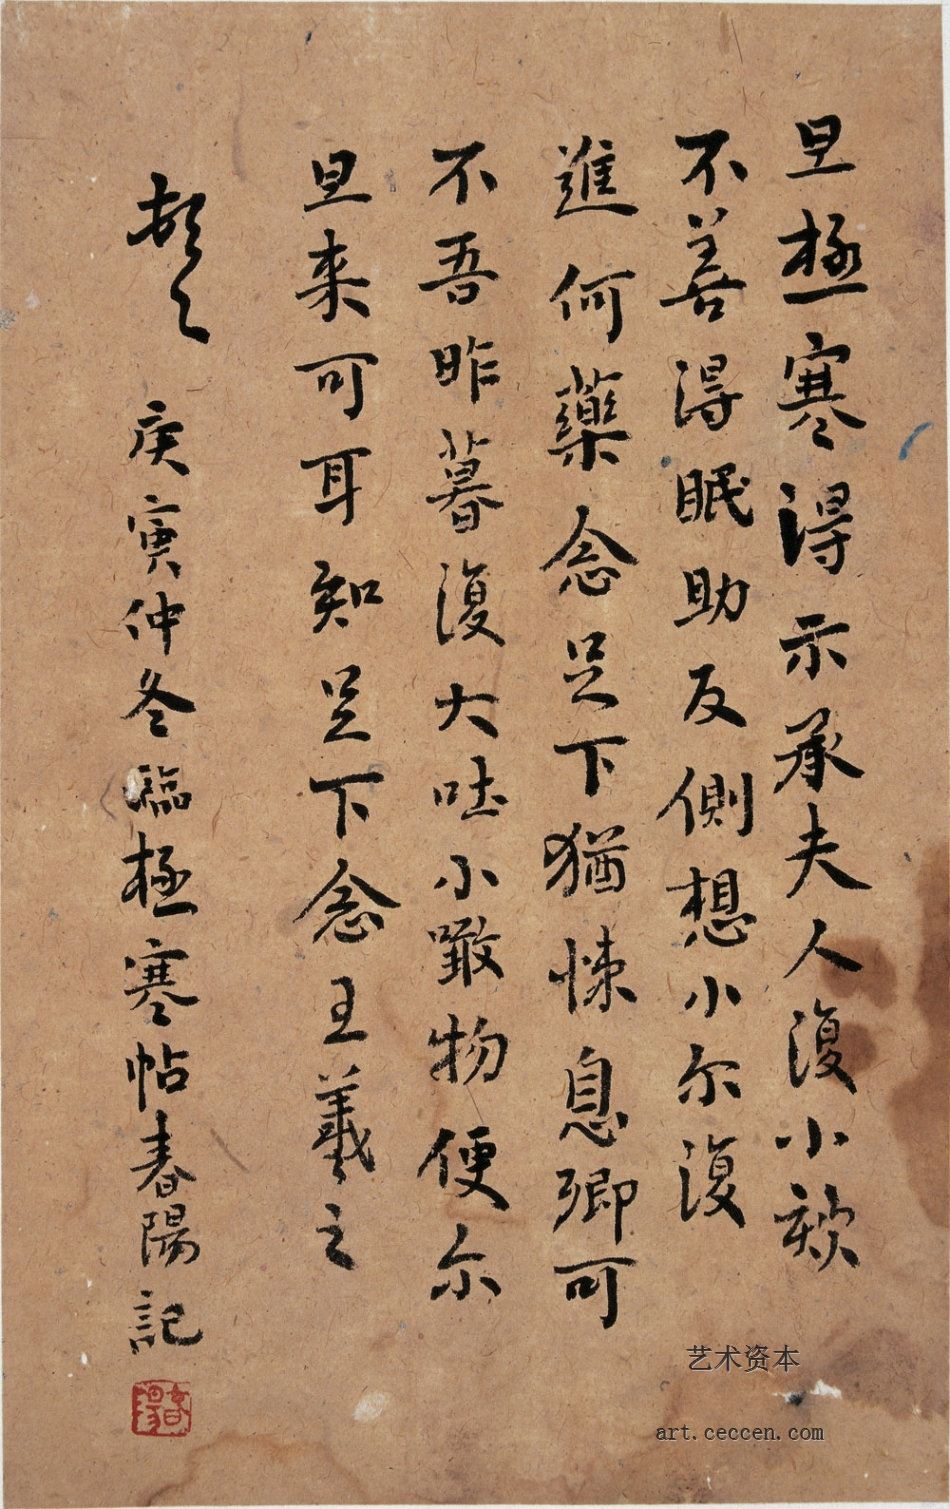 旦極寒得示承夫人復小欬
不善得眠助反側想小尔復
進何藥念足下猶悚息卿可
不吾昨暮復大吐小噉物便尔
旦来可耳知足下念王羲之
頓〻
庚寅仲冬臨極寒帖春陽記
春陽
艺术资本
art.ceccen.com